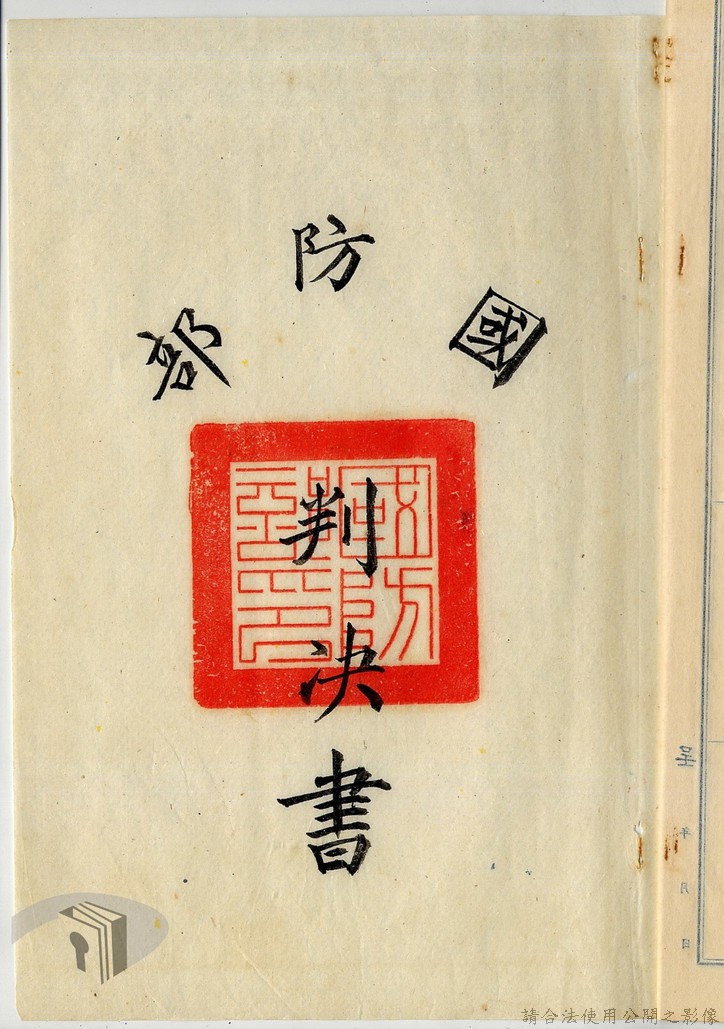 國防部
判決書
呈
年
月
日
請合法使用公開之影像